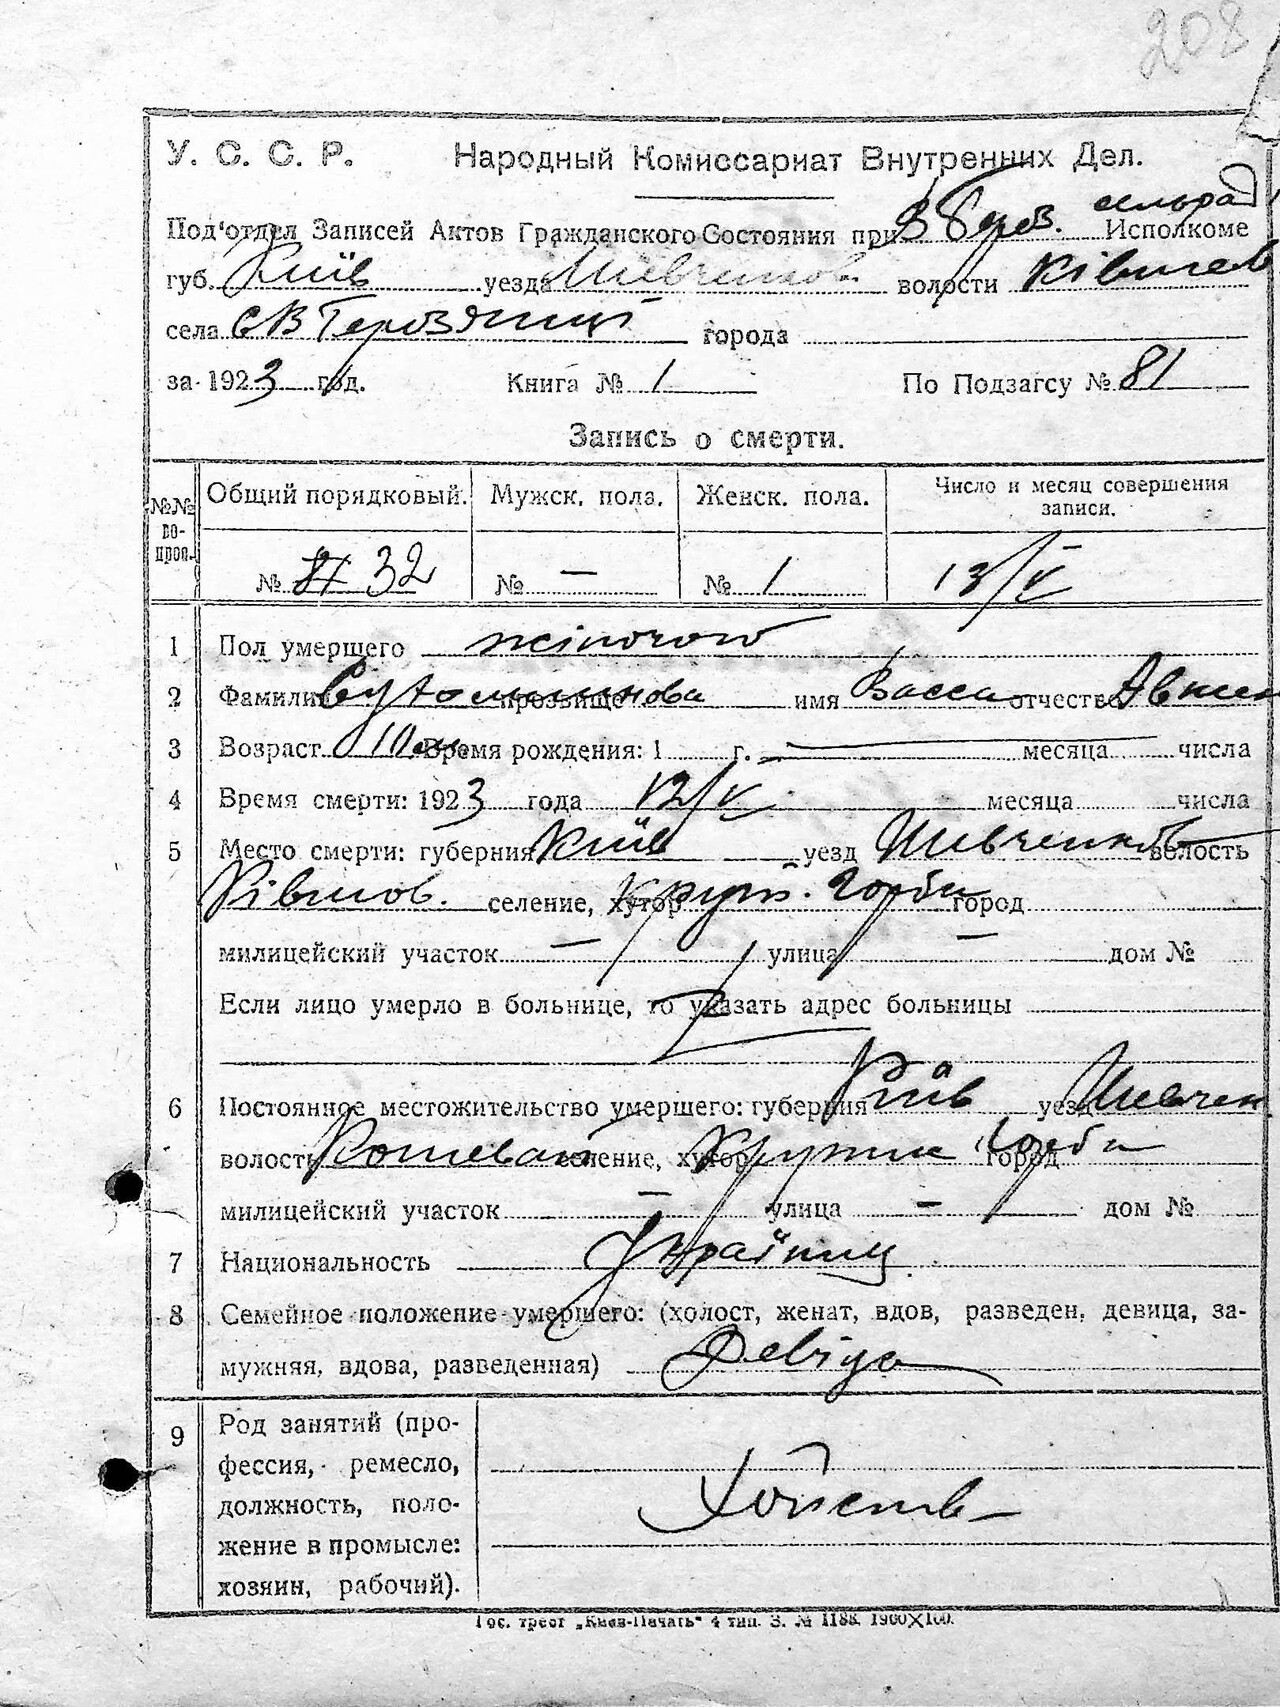 208
У. С. С. Р. Народный Комиссариат Внутренних Дел.
сельрад
Под'отдел Записей Актов Гражданского Состояния при В Берез. Исполкоме
губ. Київ уезда Шевченков. волости Ківшов
села города
за 1923 год. Книга № 1 По Подзагсу № 81
Запись о смерти.
№№ во- прос. Общий порядковый. Мужск. пола. Женск. пола. Число и месяц совершения записи.
№ 81 32 № — № 1 13/V
1 Пол умершего жіночого
2 Фамилия прозвище имя Васса отчество Авксен
3 Возраст 10 Время рождения: 1 г. — месяца числа
4 Время смерти: 1923 года 12/V месяца числа
5 Место смерти: губерния Київ уезд Шевченков волость
Ківшов. селение, хутор Крут. Горби город
милицейский участок — улица — дом №
Если лицо умерло в больнице, то указать адрес больницы
6 Постоянное местожительство умершего: губерния Київ уезд Шевчен
волость селение, хутор Крути Горби город
милицейский участок — улица — дом №
7 Национальность Україниц
8 Семейное положение умершего: (холост, женат, вдов, разведен, девица, за-
мужняя, вдова, разведенная) Девіца
9 Род занятий (про-
фессия, ремесло,
должность, поло-
жение в промысле:
хозяин, рабочий).
Гос. трест „Киев-Печать“ 4 тип. З. № 1188. 1900X100.